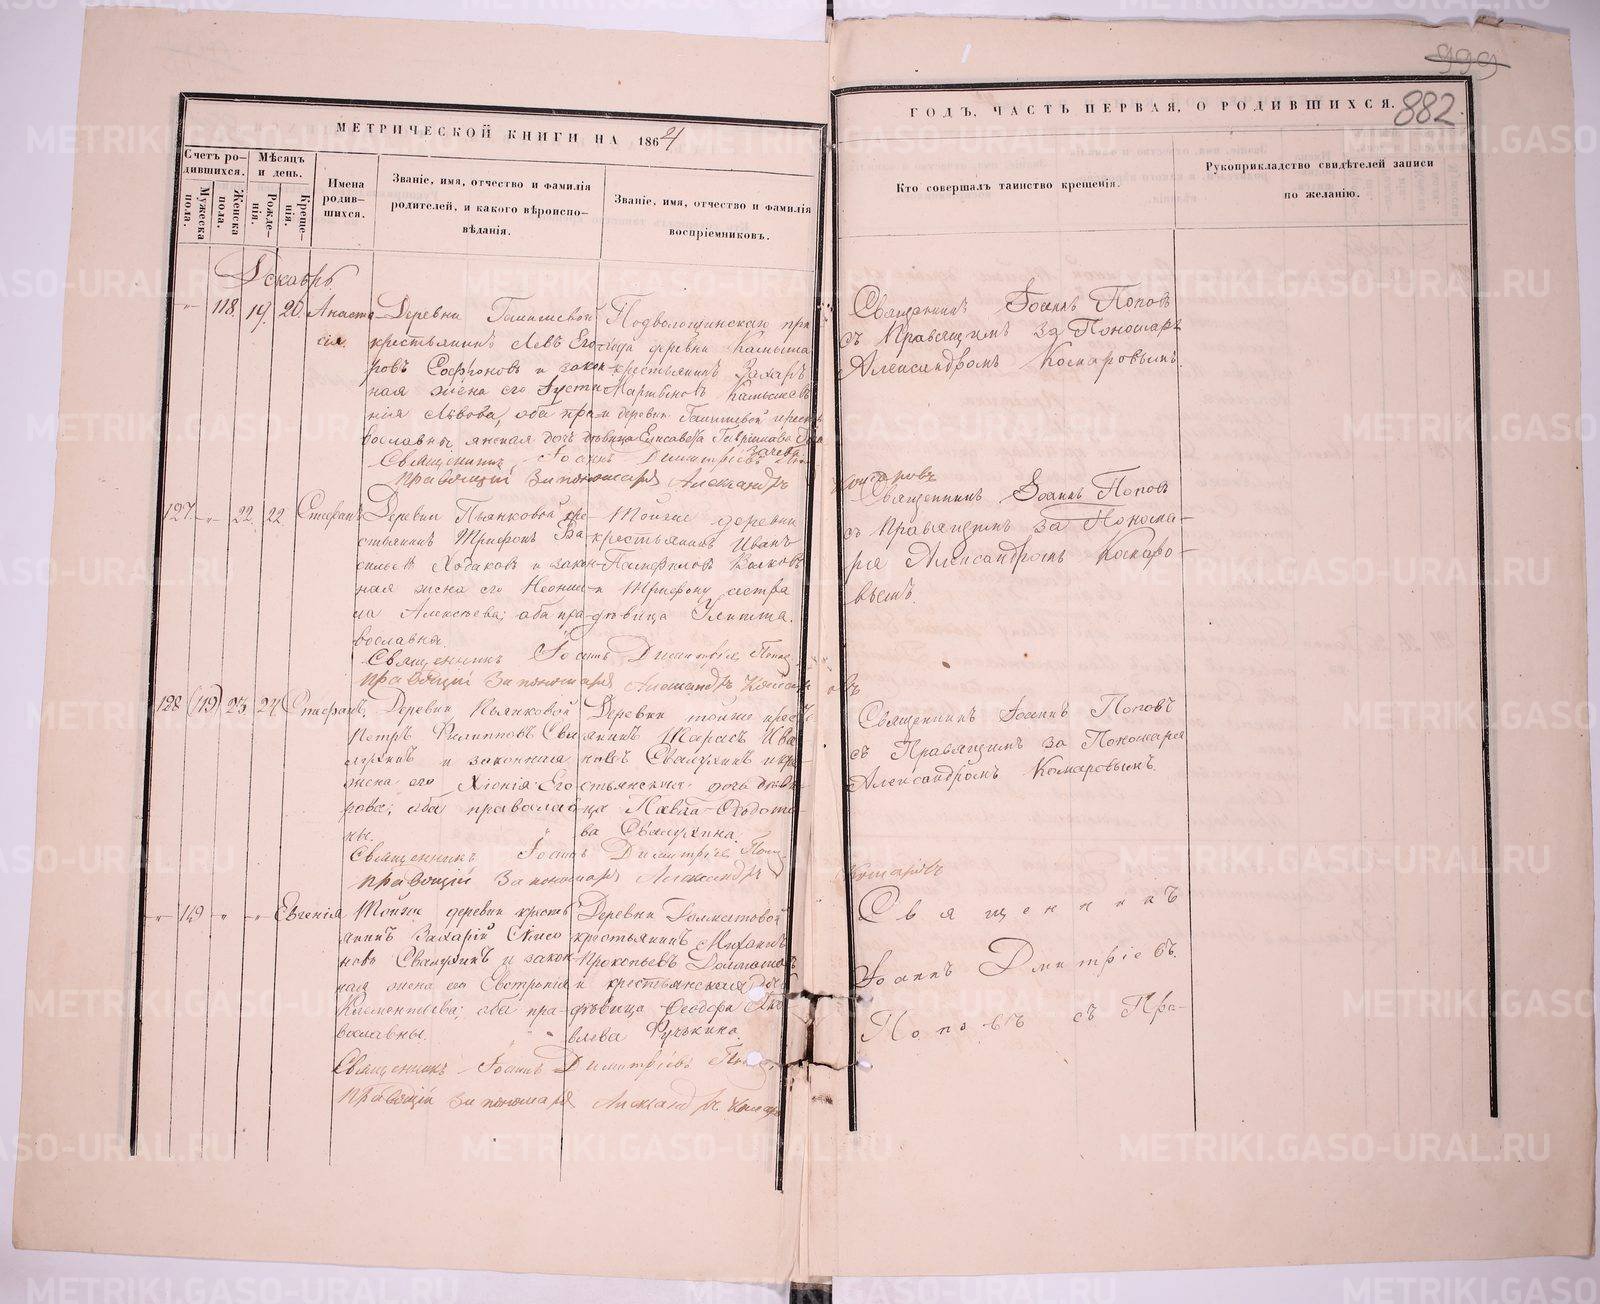 999
МЕТРИЧЕСКОЙ КНИГИ НА 1864
ГОДЪ, ЧАСТЬ ПЕРВАЯ, О РОДИВШИХСЯ.
882
Счетъ ро-
дившихся.
Мужеска пола.
Женска пола.
Мѣсяцъ
и день.
Рожде-
нія.
Креще-
нія.
Имена
родив-
шихся.
Званіе, имя, отчество и фамилія
родителей, и какого вѣроиспо-
вѣданія.
Званіе, имя, отчество и фамилія
воспріемниковъ.
Кто совершалъ таинство крещенія.
Рукоприкладство свидѣтелей записи
по желанію.
Декабрь
118. 19. 20. Анаста
сія.
Деревни
крестьянинъ Левъ Его-
ровъ Софроновъ и закон
ная жена его Густи
нія Львова, оба пра-
вославны
Подволошинскаго при
хода деревни Камыша
крестьянинъ Захаръ
Мартыновъ
и деревни
янская дочь дѣвица Елисавета Гаврилова
Священникъ Іоаннъ Димитріевъ
Правящій за пономаря Александръ
Комаровъ
Священникъ Іоаннъ Поповъ
съ Правящимъ за Пономаря
Александромъ Комаровымъ
127 " 22. 22. Стефанъ
Деревни Пьянковой кре-
стьянинъ Трифонъ Ва
сильевъ и закон-
ная жена его Неони-
ла Алексѣева; оба пра-
вославны.
Тойже деревни
крестьянинъ Иванъ
Памфиловъ Волковъ
и Трифону сестра
дѣвица Улитта.
Священникъ Іоаннъ Димитріевъ Попов
Правящій за пономаря Александръ Комаровъ
Священникъ Іоаннъ Поповъ
съ Правящимъ за Понома-
ря Александромъ Комаро-
вымъ.
128 (119) 23 24 Стефанъ.
Деревни Пьянковой
Петръ Филипповъ Сва
лухинъ и законная
жена его Хіонія Его
рова; оба православ
ны.
Деревни тойже крест
янинъ Тарасъ Ива
новъ Свалухинъ и кре
стьянская дочь дѣви-
ца Павла
ва Свалухина.
Священникъ Іоаннъ Димитріевъ Попов
Правящій за пономаря Александръ
Комаровъ
Священникъ Іоаннъ Поповъ
съ Правящимъ за Пономаря
Александромъ Комаровымъ.
" 119 " " Евгенія.
Тойже деревни кресть
янинъ Захарій
новъ Свалухинъ и закон
ная жена его Евстропия
Климентьева; оба пра-
вославны.
Деревни Долматовой
крестьянинъ Михаилъ
Прокопьевъ Долматовъ
и крестьянская дочь
дѣвица Феодора Яко
влева
Священникъ Іоаннъ Димитріевъ Попов
Правящій за пономаря Александръ Комаров
Священникъ
Іоаннъ Дмитріевъ.
Поповъ съ Пра-